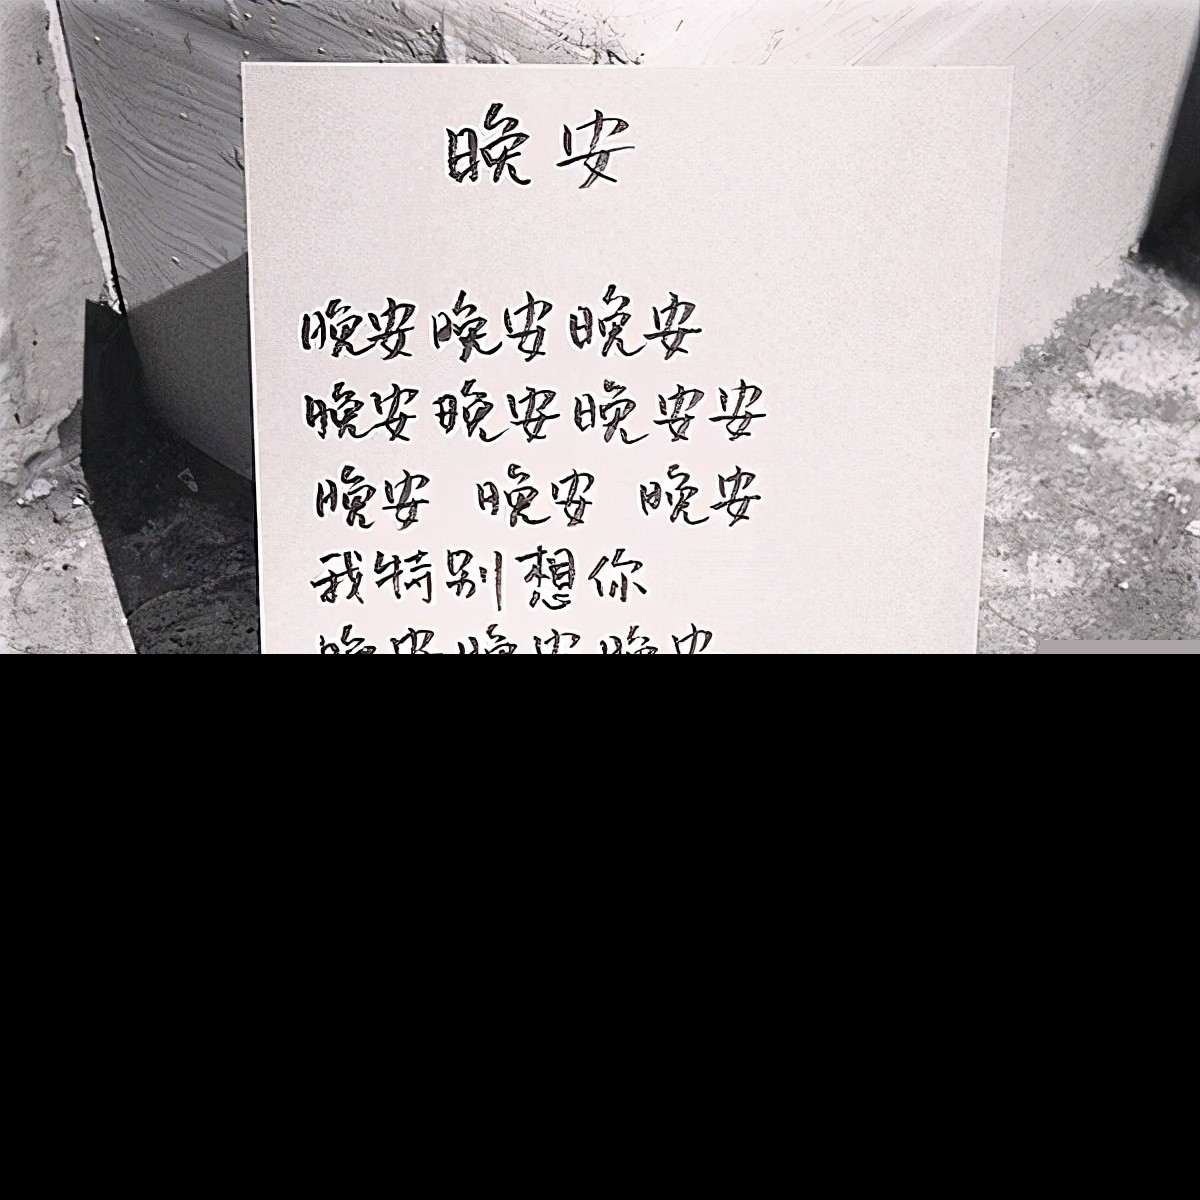 晚安
晚安晚安晚安
晚安晚安晚安安
晚安 晚安 晚安
我特别想你
晚安晚安晚安